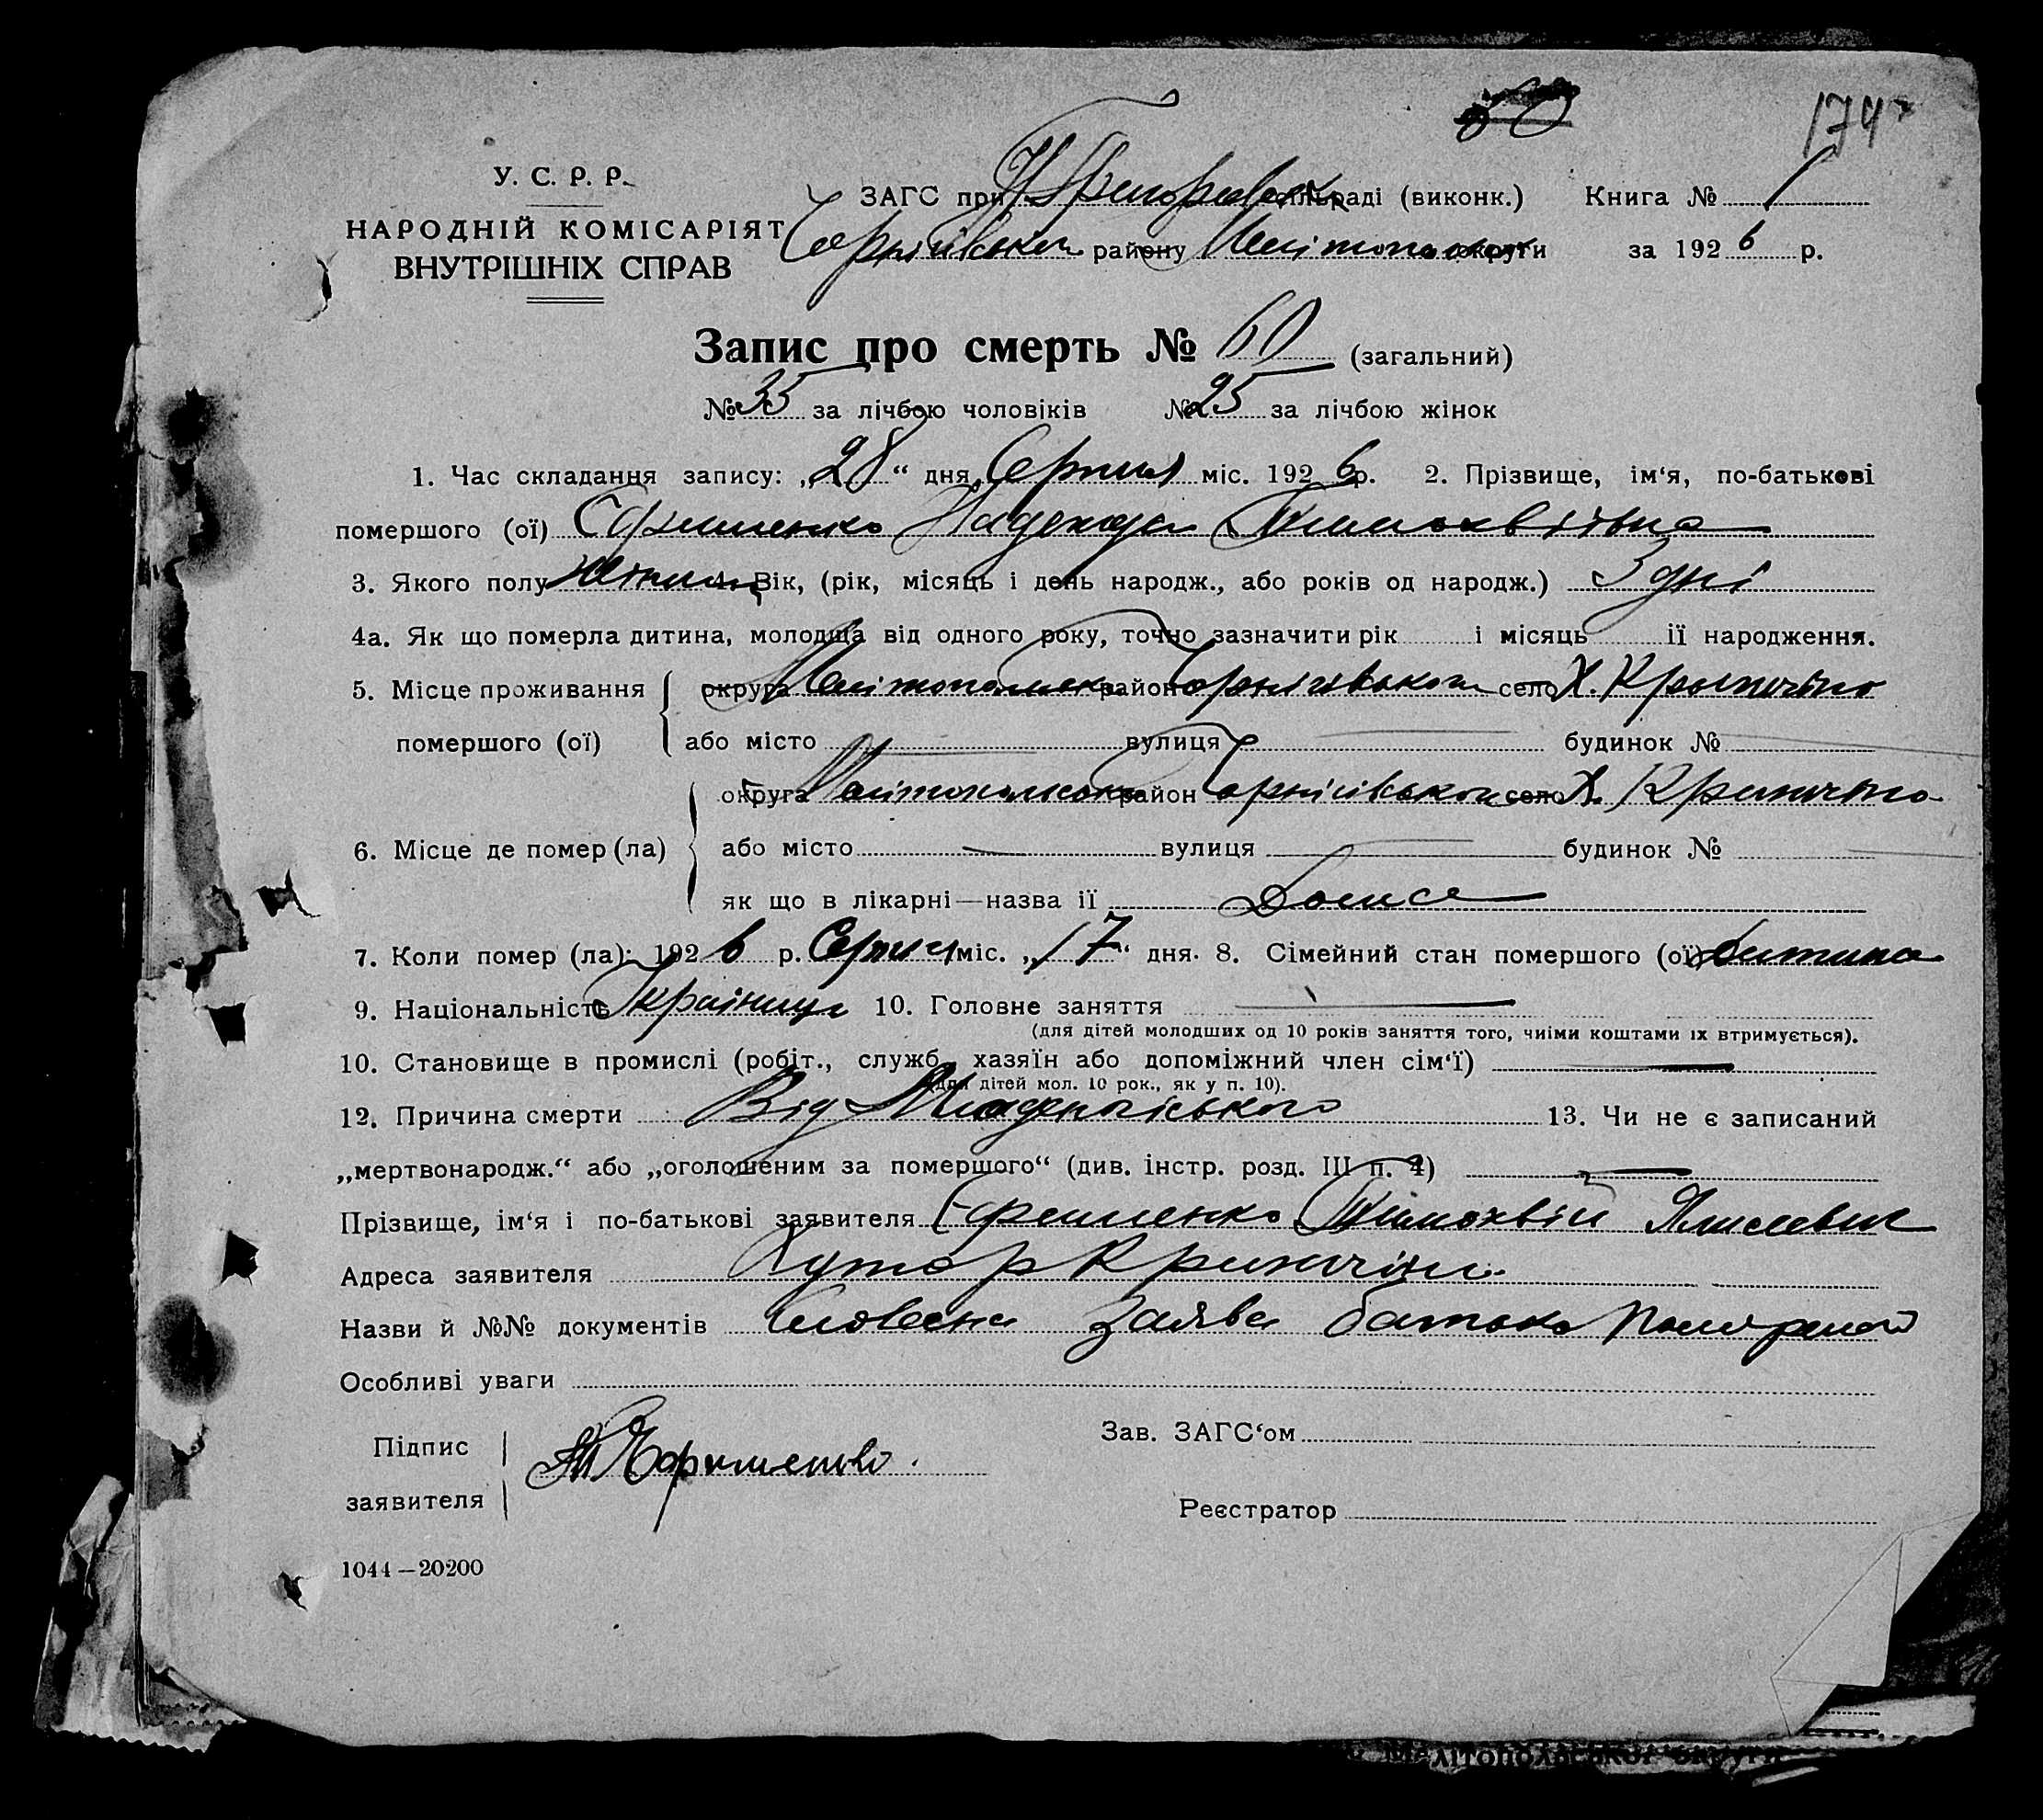 60
174
У. С. Р. Р.
ЗАГС при Н Григоровск сільраді (виконк.) Книга № 1
НАРОДНІЙ КОМІСАРІЯТ
Чернігівськ району Мелітопольск округи за 1926 р.
ВНУТРІШНІХ СПРАВ
Запис про смерть № 60 (загальний)
№ 35 за лічбою чоловіків № 25 за лічбою жінок
1. Час складання запису: „28“ дня Серпня міс. 1926 р. 2. Прізвище, ім‘я, по-батькові
помершого (ої) Єфименко Надежда Тимохвіївна
3. Якого полу 4. Вік, (рік, місяць і день народж., або років од народж.) 3 дні
4а. Як що померла дитина, молодща від одного року, точно зазначити рік і місяць її народження.
5. Місце проживання округа Мелітопольськ район Чернігівськой село Х. Кръпчіно
помершого (ої) або місто вулиця будинок №
округа Мелітопольськ район Чернігівськой село Х. Крипчіно
6. Місце де помер (ла) або місто вулиця будинок №
як що в лікарні—назва її Дома
7. Коли помер (ла): 1926 р. Серпня міс. „17“ дня. 8. Сімейний стан помершого (ої) дитина
9. Національність Українці 10. Головне заняття
(для дітей молодших од 10 років заняття того, чиїми коштами їх втримується).
10. Становище в промислі (робіт., служб., хазяїн або допоміжний член сім‘ї)
(для дітей мол. 10 рок., як у п. 10).
12. Причина смерти Від Младенчіського 13. Чи не є записаний
„мертвонародж.“ або „оголошеним за помершого“ (див. інстр. розд. III п. 4)
Прізвище, ім‘я і по-батькові заявителя Єфименко Тимохвій
Адреса заявителя Хутор Крипчіни
Назви й №№ документів Словесна Заява батька
Особливі уваги
Підпис Зав. ЗАГС‘ом
заявителя
Реєстратор
1044—20200
Мелітопольської округи